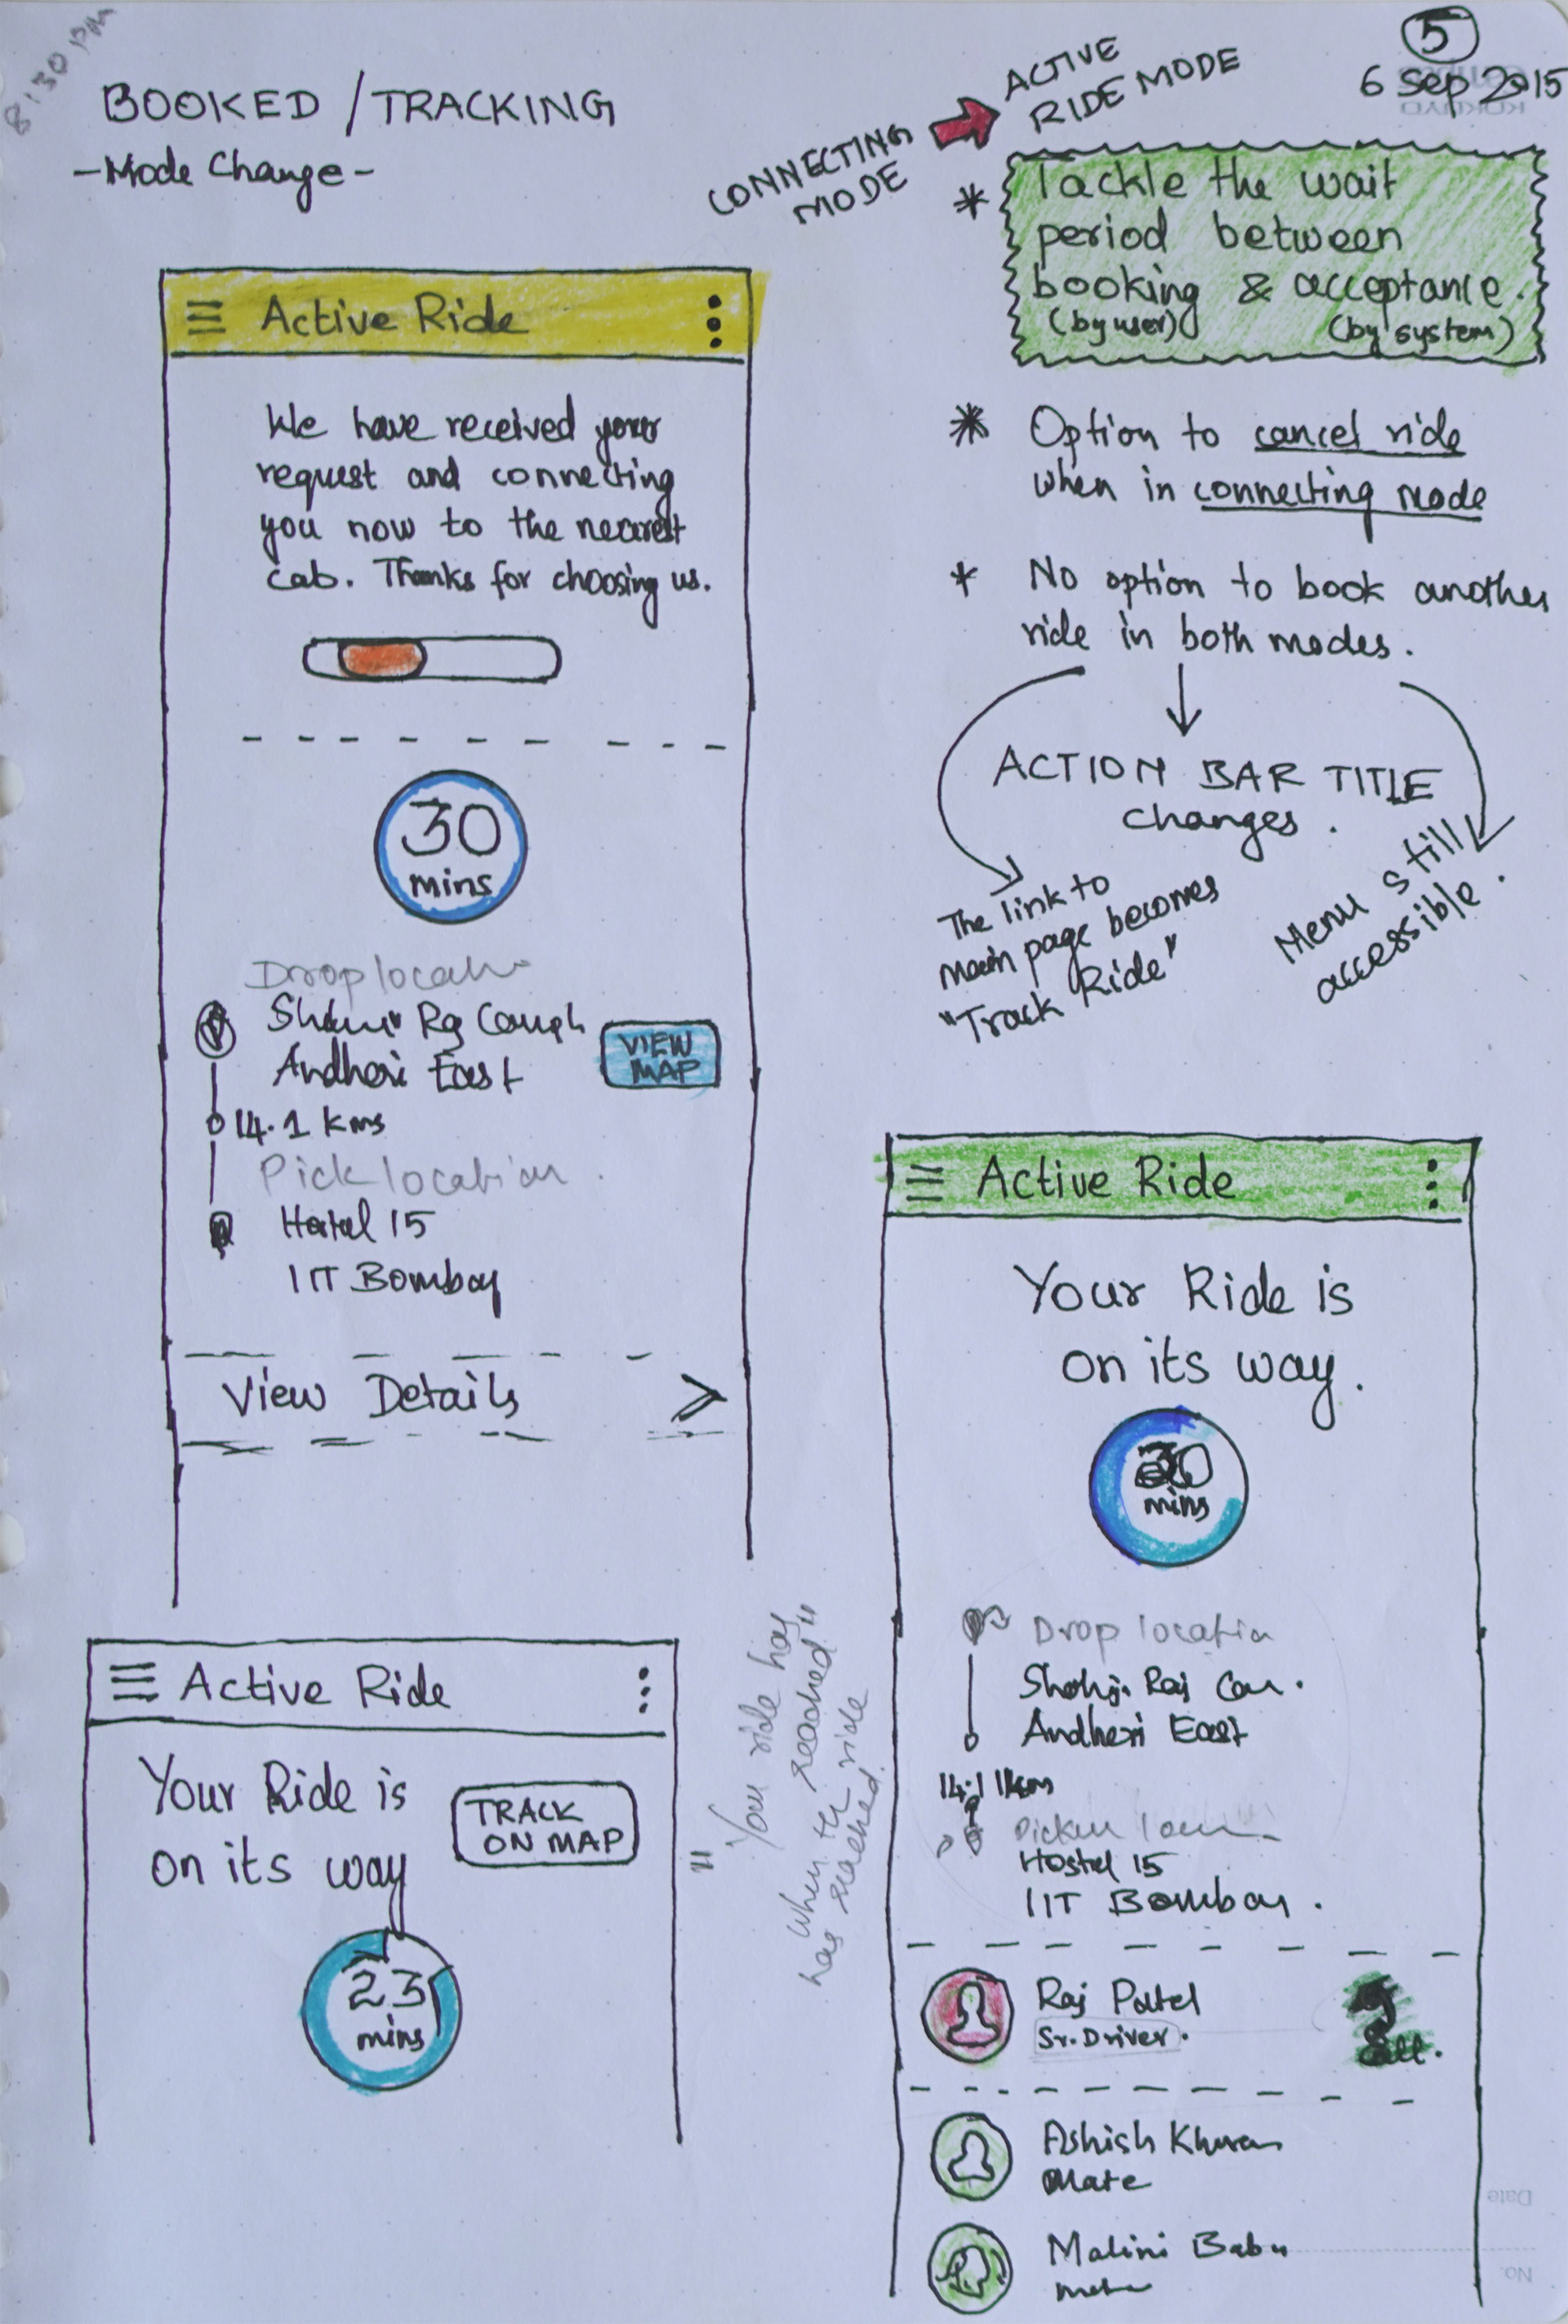 8:30 PM
BOOKED / TRACKING
-Mode Change-
CONNECTING
MODE
ACTIVE
RIDE MODE
5
6 Sep 2015
* Tackle the wait
period between
booking & acceptance.
(by user) (by system)
* Option to cancel ride
when in connecting mode
* No option to book another
ride in both modes.
ACTION BAR TITLE
changes.
The link to
main page becomes
"Track Ride"
Menu still
accessible.
Active Ride
We have received your
request and connecting
you now to the nearest
cab. Thanks for choosing us.
30
mins
Drop location
Andheri East
VIEW
MAP
14.1 kms
Pick location.
Hostel 15
IIT Bombay
View Details >
Active Ride
Your Ride is
on its way
TRACK
ON MAP
23
mins
"Your ride has
reached"
when the ride
has reached.
Active Ride
Your Ride is
on its way.
30
mins
Drop location
Andheri East
14.1 km
Hostel 15
IIT Bombay.
Raj Patel
Sr. Driver.
Call.
Ashish
Mate
Malini Babu
Date
No.